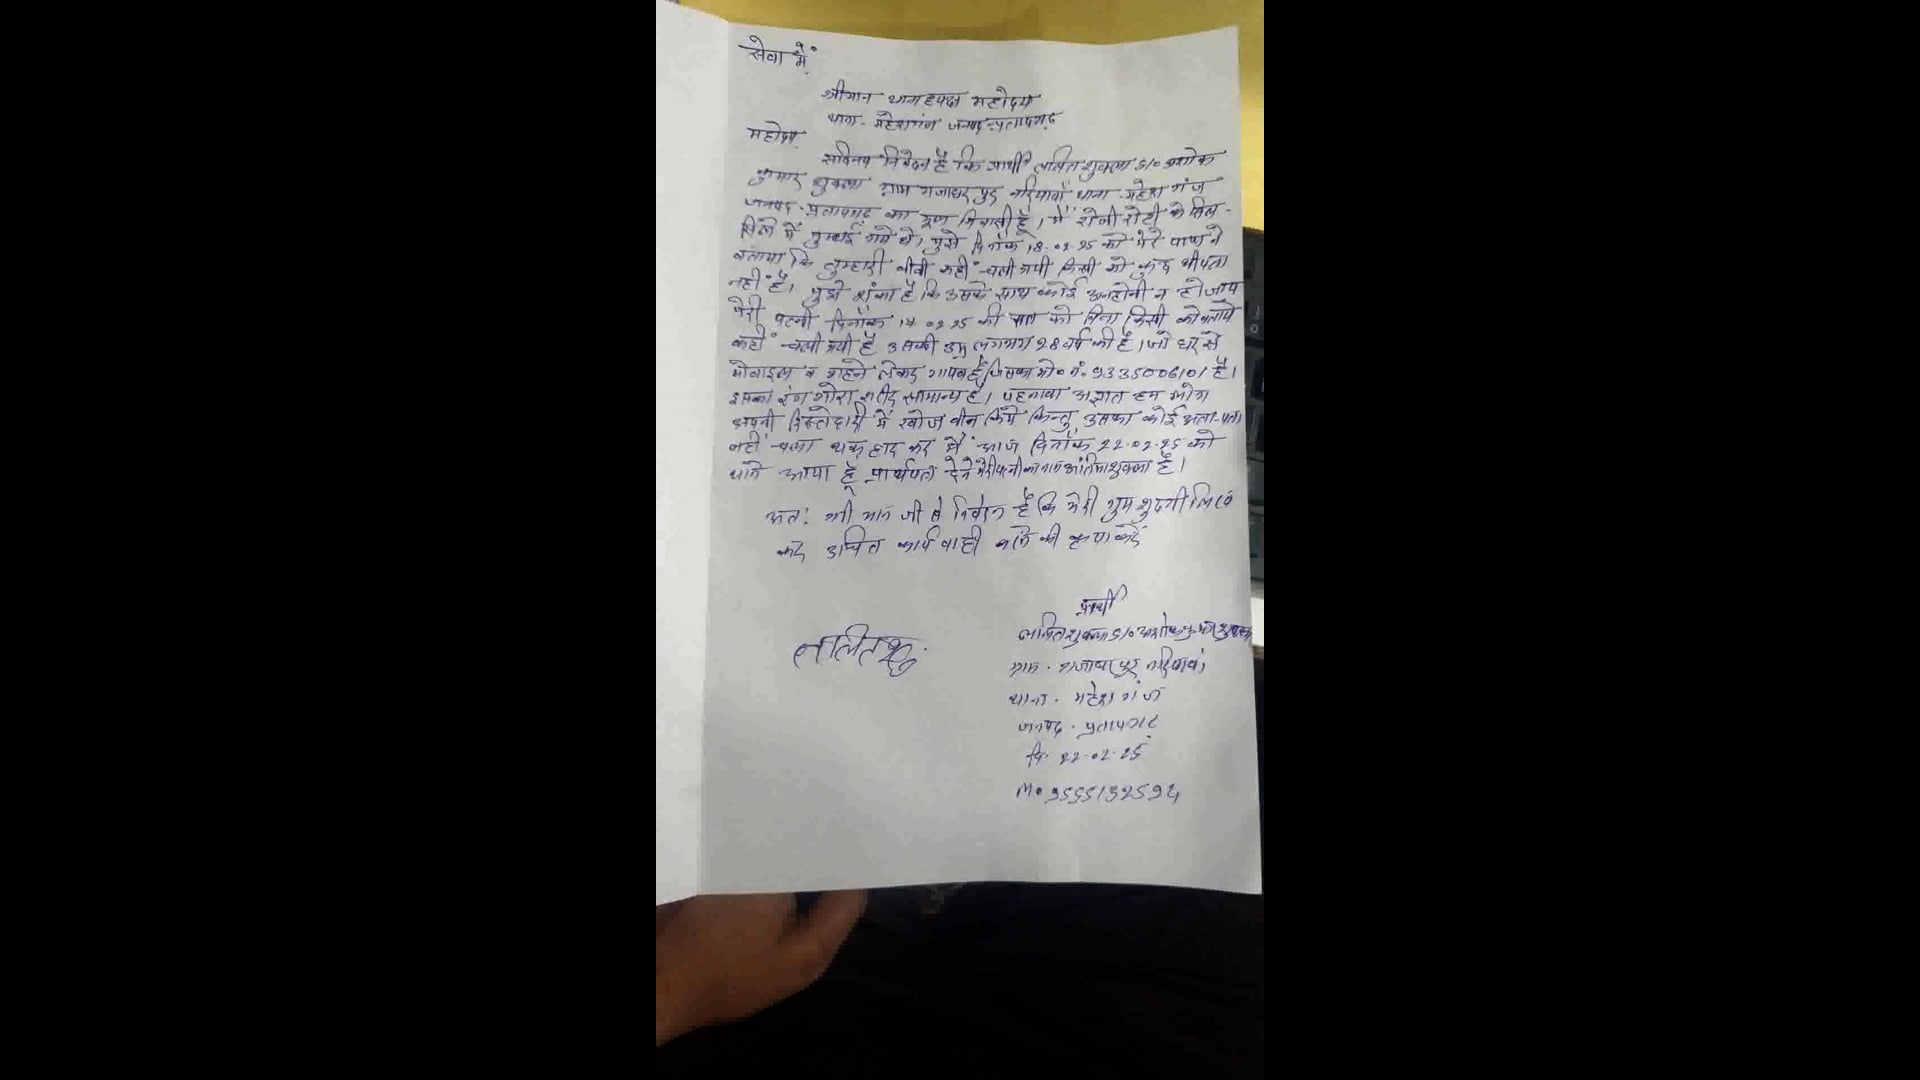 सेवा में,
श्रीमान थानाध्यक्ष महोदय
थाना- महेशगंज जनपद-प्रतापगढ़
महोदय,
सविनय निवेदन है कि प्रार्थी ललित शुक्ला S/० अशोक
कुमार शुक्ला ग्राम गजाधर पुर नरियावाँ थाना- महेश गंज
जनपद- प्रतापगढ़ का मूल निवासी हूँ। मैं रोजी रोटी के सिल-
सिले में मुम्बई गये थे। मुझे दिनांक 18-02-25 को मेरे पापा ने
बताया कि तुम्हारी बीबी कहीं चली गयी किसी को कुछ भी पता
नहीं है। मुझे शंका है कि उसके साथ कोई अनहोनी न हो जाय
मेरी पत्नी दिनाँक 17-02-25 की रात को बिना किसी को बताये
कहीं चली गयी है उसकी उम्र लगभग 28 वर्ष की है। जो घर से
मोबाइल व गहने लेकर गायब है, जिसका मो० नं० 9335006101 है।
इसका रंग गोरा, शरीर सामान्य है। पहनावा अज्ञात हम लोग
अपनी रिस्तेदारी में खोज बीन किये किन्तु उसका कोई अता-पता
नहीं चला थक हार कर मैं आज दिनाँक 22-02-25 को
थाने आया हूँ प्रार्थपत्र देने मेरी पत्नी का नाम शुक्ला है।
अतः श्री मान जी से निवेदन है कि मेरी गुमशुदगी लिख
कर उचित कार्यवाही करने की कृपा करें
प्रार्थी
ललित शुक्ला S/० अशोक कुमार शुक्ला
ललित शु
ग्राम- गजाधरपुर नरियावां
थाना- महेश गंज
जनपद- प्रतापगढ़
दि- 22-02-25